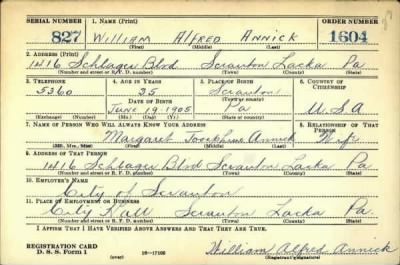 SERIAL NUMBER 1. NAME (Print) ORDER NUMBER
827 William Alfred Annick 1604
(First) (Middle) (Last)
2. ADDRESS (Print)
1416 Schlager Blvd Scranton Lacka Pa.
(Number and street or R. F. D. number) (Town) (County) (State)
3. TELEPHONE 4. AGE IN YEARS 5. PLACE OF BIRTH 6. COUNTRY OF CITIZENSHIP
5360 35 Scranton
DATE OF BIRTH (Town or county)
June 19-1905 Pa USA
(Exchange) (Number) (Mo.) (Day) (Yr.) (State or country)
7. NAME OF PERSON WHO WILL ALWAYS KNOW YOUR ADDRESS 8. RELATIONSHIP OF THAT PERSON
Margaret Josephine Annick Wife
(Mr., Mrs., Miss) (First) (Middle) (Last)
9. ADDRESS OF THAT PERSON
1416 Schlager Blvd Scranton Lacka Pa
(Number and street or R. F. D. number) (Town) (County) (State)
10. EMPLOYER'S NAME
City of Scranton
11. PLACE OF EMPLOYMENT OR BUSINESS
City Hall Scranton Lacka Pa.
(Number and street or R. F. D. number) (Town) (County) (State)
I AFFIRM THAT I HAVE VERIFIED ABOVE ANSWERS AND THAT THEY ARE TRUE.
REGISTRATION CARD
D. S. S. Form 1 (over) 16-17105 William Alfred Annick
(Registrant's signature)